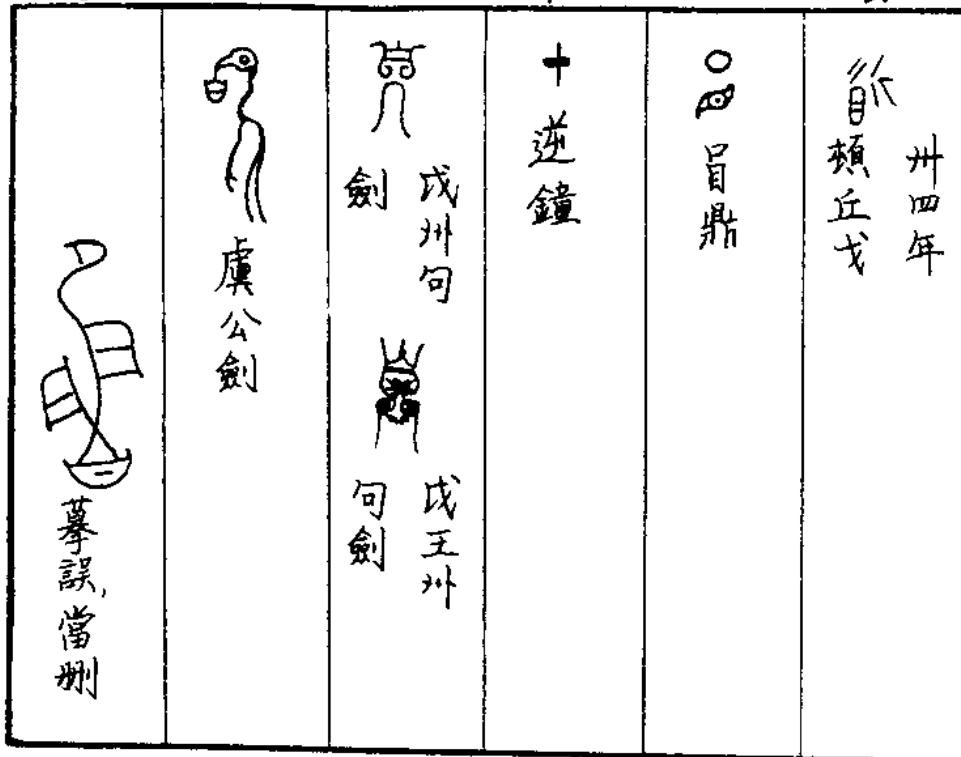 卅四年
頓丘戈
冒鼎
逆鐘
戉州句
劍
戉王州
句劍
虞公劍
摹誤,當刪